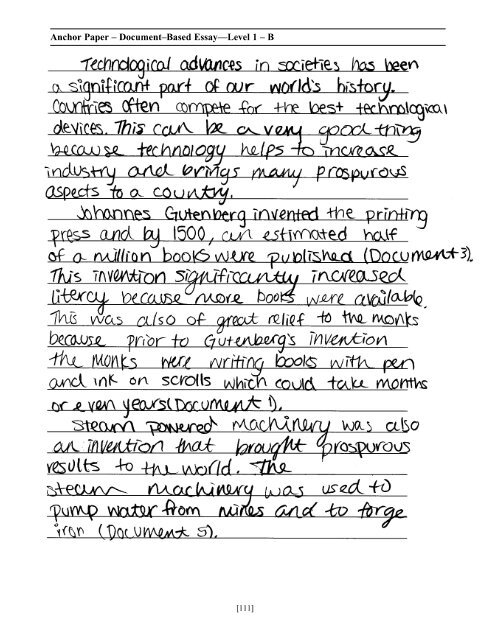 Anchor Paper – Document–Based Essay—Level 1 – B
Technological advances in societies has been
a significant part of our world's history.
Countries often compete for the best technological
devices. This can be a very good thing
because technology helps to increase
industry and brings many prospurous
aspects to a country.
Johannes Gutenberg invented the printing
press and by 1500, an estimated half
of a million books were published (Document 3).
This invention significantly increased
litercy because more books were available.
This was also of great relief to the monks
because prior to Gutenberg's invention
the monks were writing books with pen
and ink on scrolls which could take months
or even years (Document 1).
Steam powered machinery was also
an invention that brought prospurous
results to the world. The
steam machinery was used to
pump water from mines and to forge
iron (Document 5).
[111]